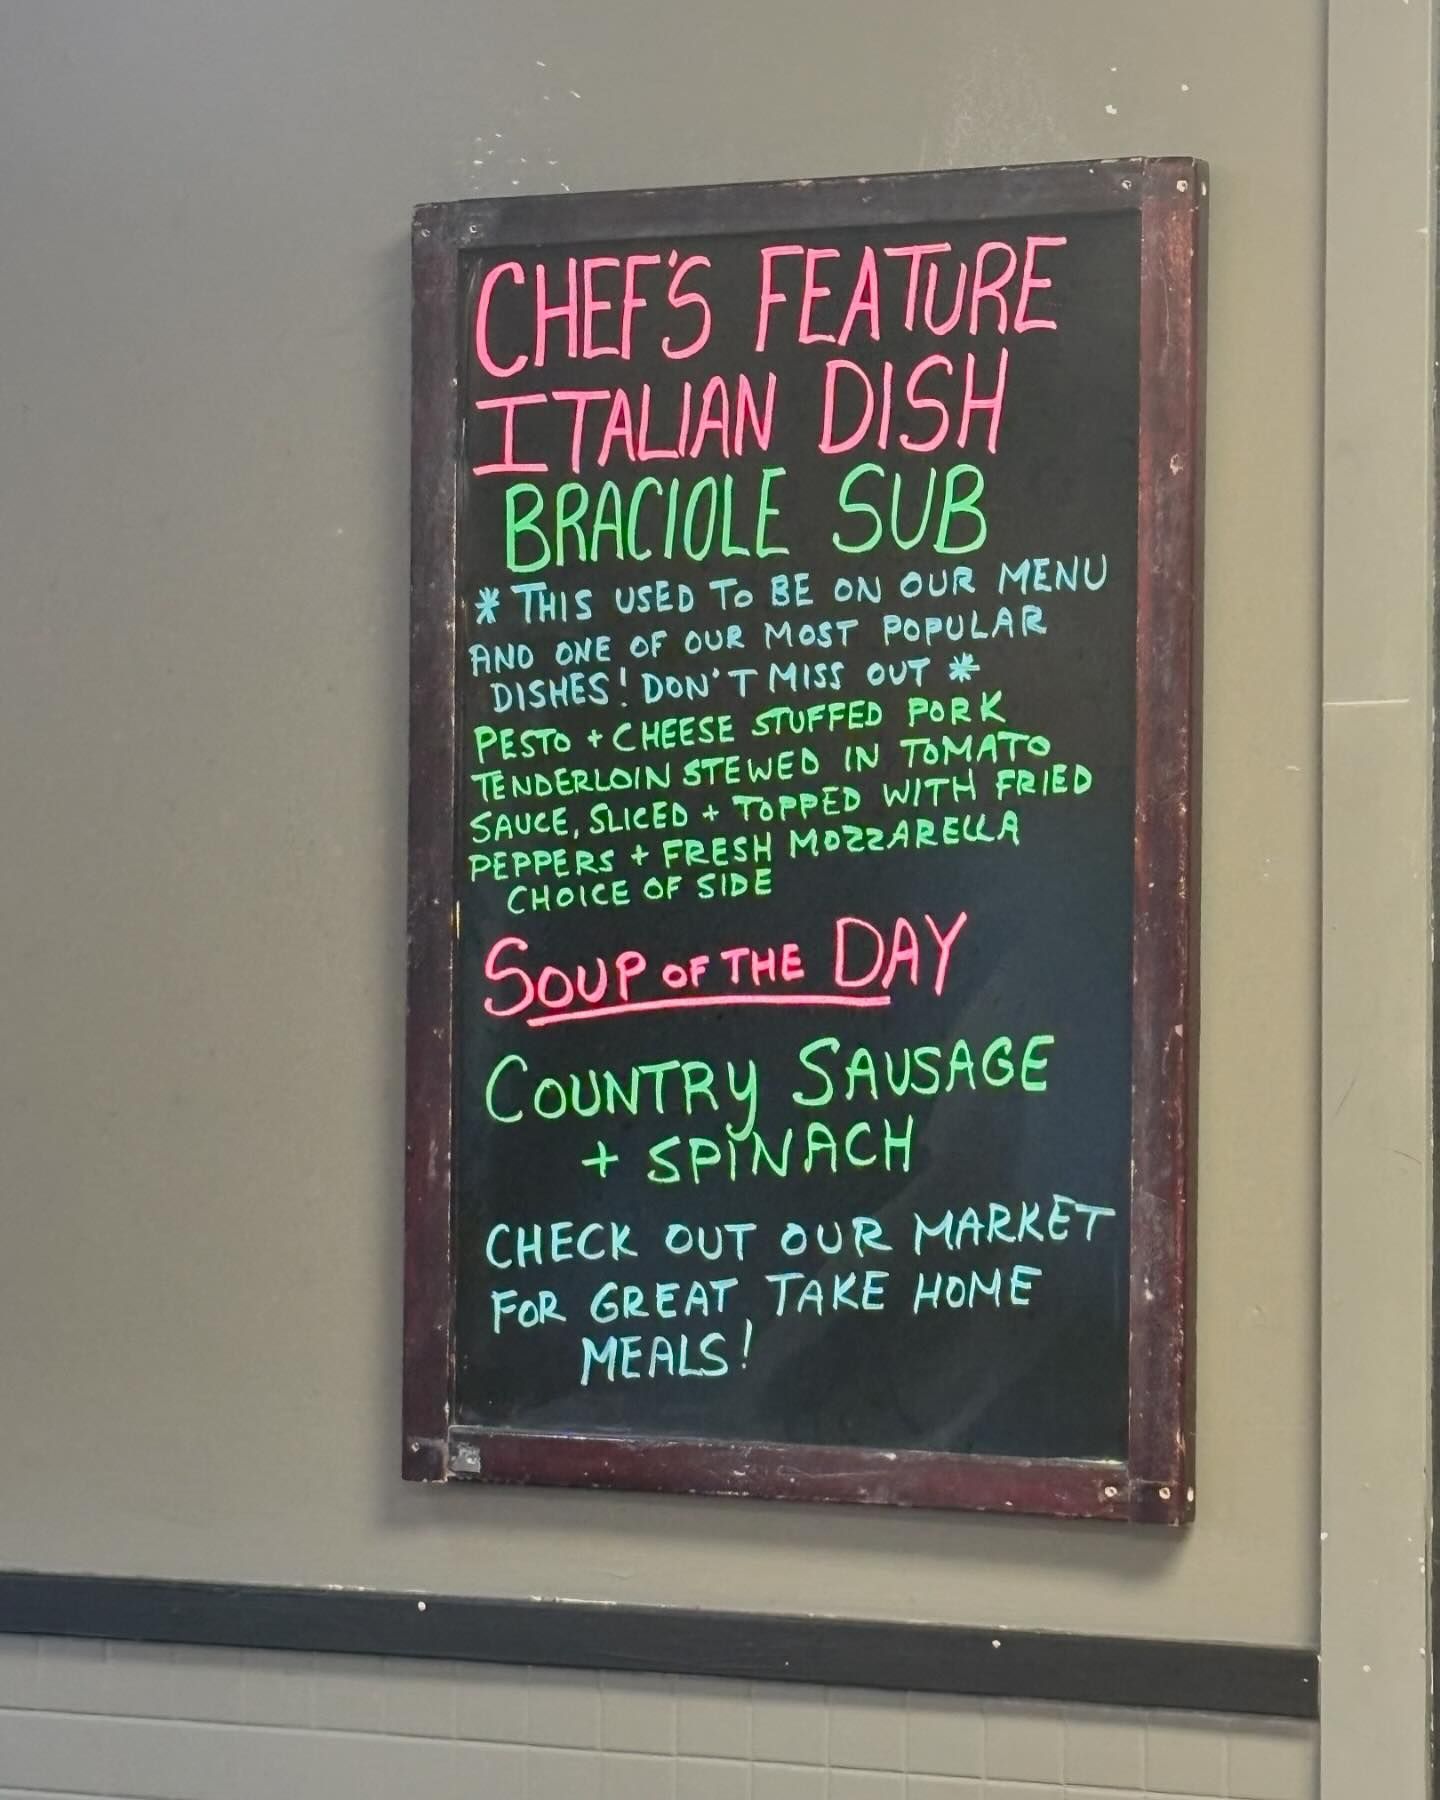 CHEF'S FEATURE
ITALIAN DISH
BRACIOLE SUB
* THIS USED TO BE ON OUR MENU
AND ONE OF OUR MOST POPULAR
DISHES! DON'T MISS OUT *
PESTO + CHEESE STUFFED PORK
TENDERLOIN STEWED IN TOMATO
SAUCE, SLICED + TOPPED WITH FRIED
PEPPERS + FRESH MOZZARELLA
CHOICE OF SIDE
SOUP OF THE DAY
COUNTRY SAUSAGE
+ SPINACH
CHECK OUT OUR MARKET
FOR GREAT TAKE HOME
MEALS!